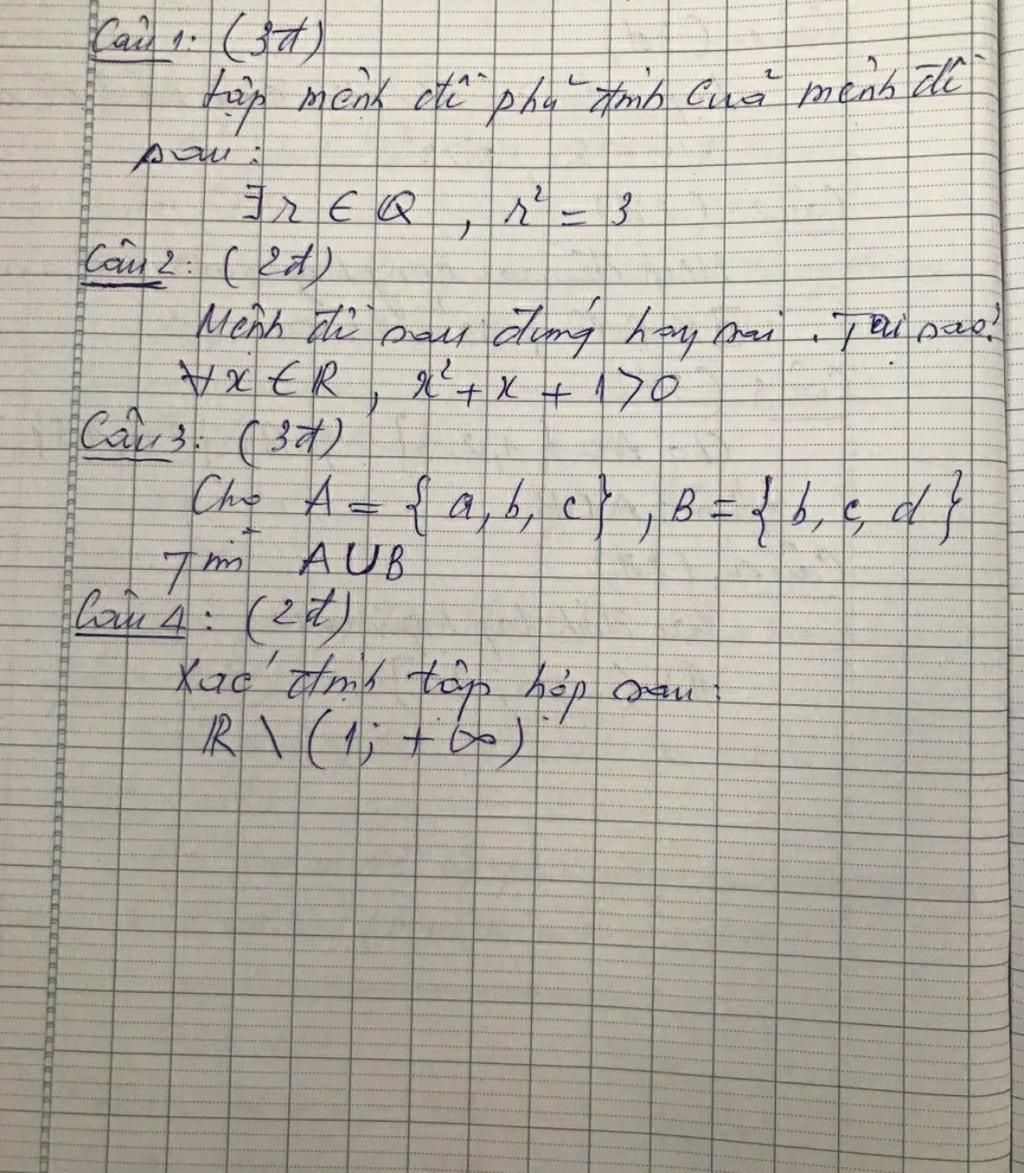 Câu 1: (3đ)
Lập mệnh đề phủ định của mệnh đề
sau:
∃ r ∈ Q , r² = 3
Câu 2: (2đ)
Mệnh đề sau đúng hay sai . Tại sao?
∀x ∈ R , x² + x + 1 > 0
Câu 3: (3đ)
Cho A = { a, b, c } , B = { b, c, d }
Tìm A ∪ B
Câu 4 : (2đ)
Xác định tập hợp sau:
R \ (1; + ∞)